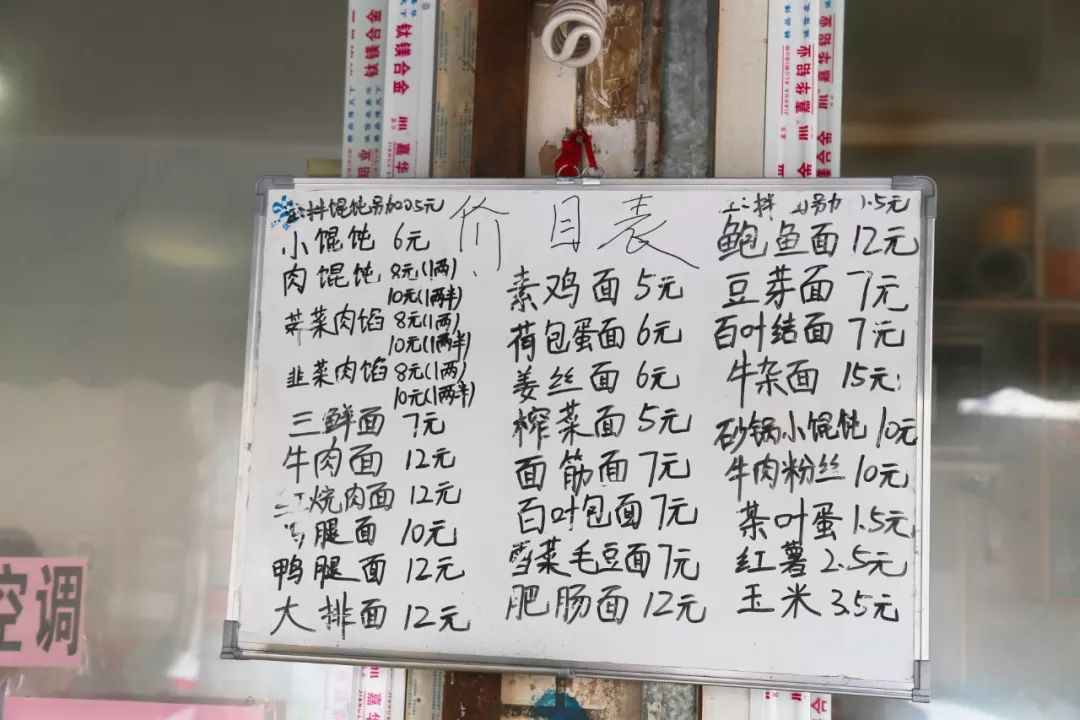 价目表
拌馄饨另加0.5元
小馄饨 6元
肉馄饨 8元(1两)
10元(1两半)
荠菜肉馅 8元(1两)
10元(1两半)
韭菜肉馅 8元(1两)
10元(1两半)
三鲜面 7元
牛肉面 12元
红烧肉面 12元
腿面 10元
鸭腿面 12元
大排面 12元
素鸡面 5元
荷包蛋面 6元
姜丝面 6元
榨菜面 5元
面筋面 7元
百叶包面 7元
雪菜毛豆面 7元
肥肠面 12元
拌 另加 1.5元
鲍鱼面 12元
豆芽面 7元
百叶结面 7元
牛杂面 15元
砂锅小馄饨 10元
牛肉粉丝 10元
茶叶蛋 1.5元
红薯 2.5元
玉米 3.5元
钛镁合金
钛镁合金
嘉华铝业
嘉华铝业
空调